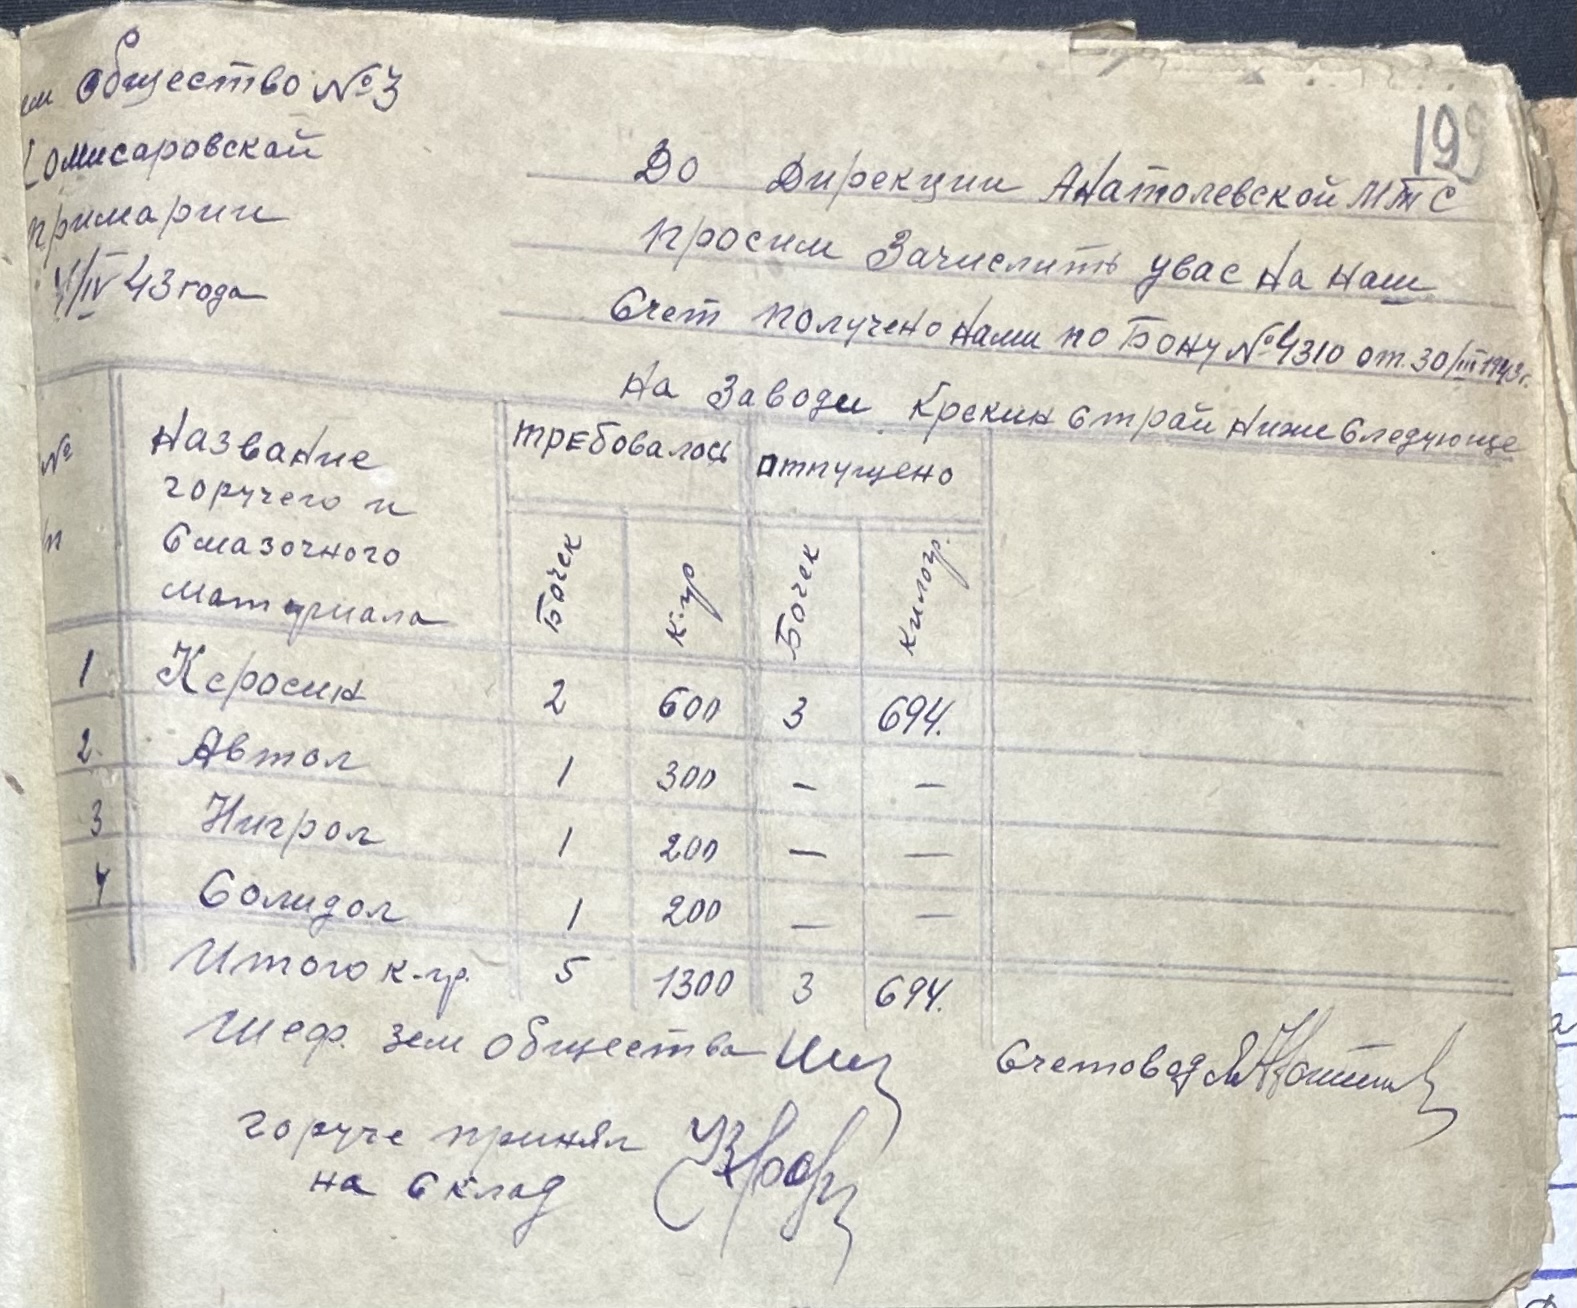 Общество №3
Комисаровской
примарии
4/IV 43 года
199
До Дирекции Анатолевской МТС
просим Зачислить увас на наш
Счет получено нами по Бону №4310 от. 30/III 1943г.
на Заводи Крекин Страй ниже Следующе
№
п
Название
горучего и
Смазочного
материала
требовалось
отпущено
Бочек
к.гр
Бочек
килогр.
1 Керосин 2 600 3 694.
2. Автол 1 300 — —
3 Нигрол 1 200 — —
4 Солидол 1 200 — —
Итого к-гр. 5 1300 3 694.
Шеф. зем общества
Счетовод
горуче принял
на Склад